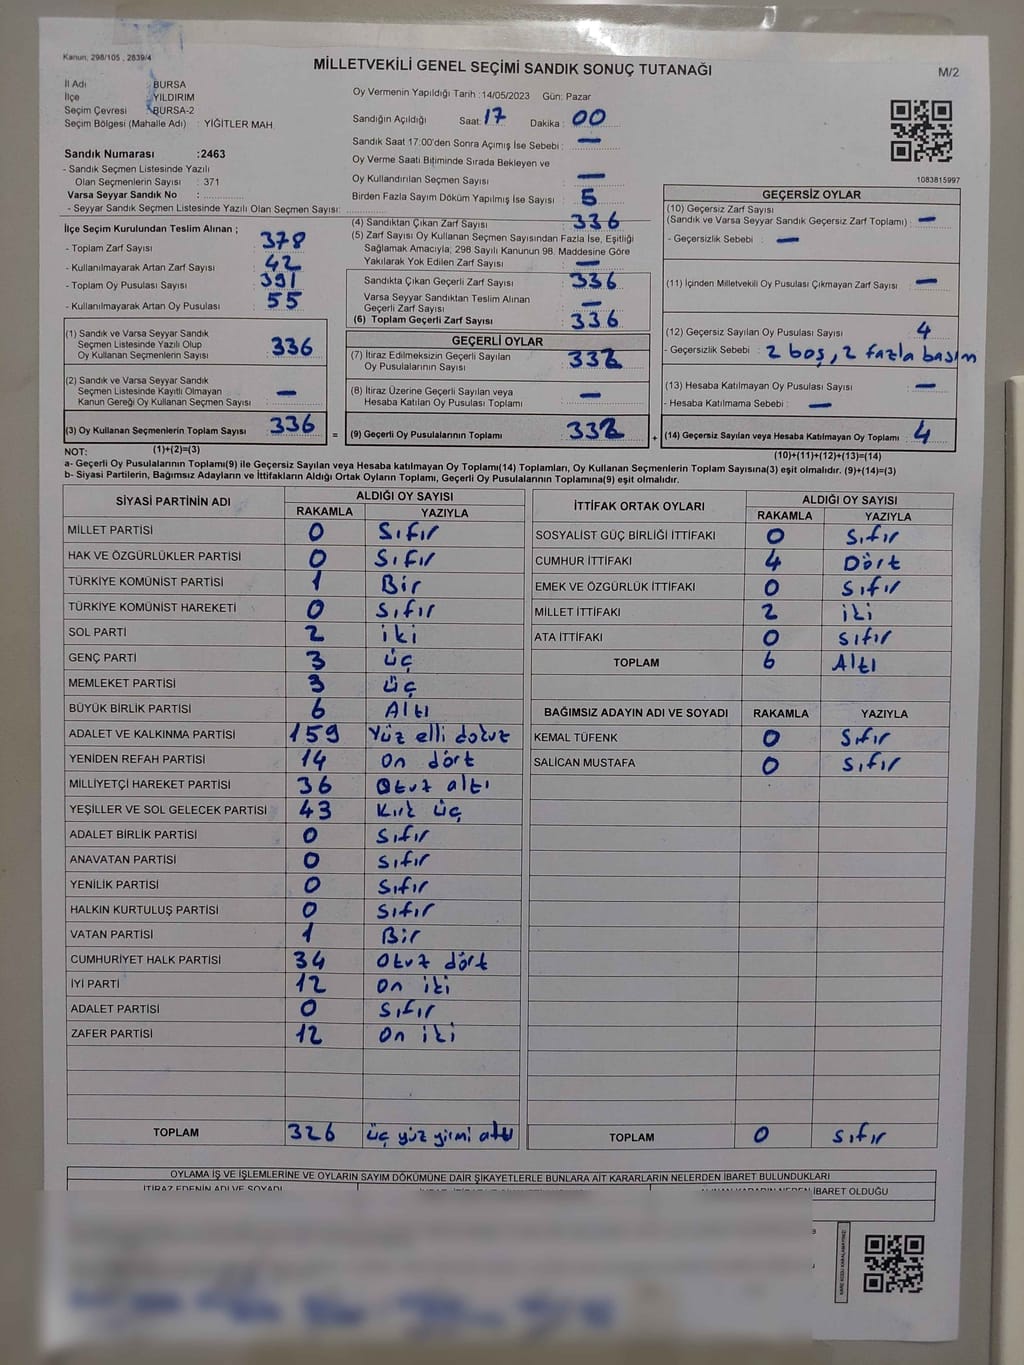 Kanun: 298/105 , 2839/4
MİLLETVEKİLİ GENEL SEÇİMİ SANDIK SONUÇ TUTANAĞI
M/2
İl Adı : BURSA
İlçe : YILDIRIM
Seçim Çevresi : BURSA-2
Seçim Bölgesi (Mahalle Adı) : YİĞİTLER MAH.
Sandık Numarası :2463
- Sandık Seçmen Listesinde Yazılı
Olan Seçmenlerin Sayısı : 371
Varsa Seyyar Sandık No :
- Seyyar Sandık Seçmen Listesinde Yazılı Olan Seçmen Sayısı:
Oy Vermenin Yapıldığı Tarih :14/05/2023 Gün: Pazar
Sandığın Açıldığı Saat: 17 Dakika : 00
Sandık Saat 17:00'den Sonra Açımış İse Sebebi : —
Oy Verme Saati Bitiminde Sırada Bekleyen ve
Oy Kullandırılan Seçmen Sayısı : —
Birden Fazla Sayım Döküm Yapılmış İse Sayısı : 5
1083815997
İlçe Seçim Kurulundan Teslim Alınan ;
- Toplam Zarf Sayısı : 378
- Kullanılmayarak Artan Zarf Sayısı : 42
- Toplam Oy Pusulası Sayısı : 391
- Kullanılmayarak Artan Oy Pusulası : 55
(1) Sandık ve Varsa Seyyar Sandık
Seçmen Listesinde Yazılı Olup
Oy Kullanan Seçmenlerin Sayısı : 336
(2) Sandık ve Varsa Seyyar Sandık
Seçmen Listesinde Kayıtlı Olmayan
Kanun Gereği Oy Kullanan Seçmen Sayısı : —
(3) Oy Kullanan Seçmenlerin Toplam Sayısı : 336
(1)+(2)=(3)
(4) Sandıktan Çıkan Zarf Sayısı : 336
(5) Zarf Sayısı Oy Kullanan Seçmen Sayısından Fazla İse, Eşitliği
Sağlamak Amacıyla; 298 Sayılı Kanunun 98. Maddesine Göre
Yakılarak Yok Edilen Zarf Sayısı : —
Sandıkta Çıkan Geçerli Zarf Sayısı : 336
Varsa Seyyar Sandıktan Teslim Alınan
Geçerli Zarf Sayısı : —
(6) Toplam Geçerli Zarf Sayısı : 336
GEÇERLİ OYLAR
(7) İtiraz Edilmeksizin Geçerli Sayılan
Oy Pusulasının Sayısı : 332
(8) İtiraz Üzerine Geçerli Sayılan veya
Hesaba Katılan Oy Pusulası Toplamı : —
= (9) Geçerli Oy Pusulalarının Toplamı : 332 +
GEÇERSİZ OYLAR
(10) Geçersiz Zarf Sayısı
(Sandık ve Varsa Seyyar Sandık Geçersiz Zarf Toplamı) : —
- Geçersizlik Sebebi : —
(11) İçinden Milletvekili Oy Pusulası Çıkmayan Zarf Sayısı : —
(12) Geçersiz Sayılan Oy Pusulası Sayısı : 4
- Geçersizlik Sebebi : 2 boş, 2 fazla basım
(13) Hesaba Katılmayan Oy Pusulası Sayısı : —
- Hesaba Katılmama Sebebi : —
(14) Geçersiz Sayılan veya Hesaba Katılmayan Oy Toplamı : 4
(10)+(11)+(12)+(13)=(14)
NOT:
a- Geçerli Oy Pusulalarının Toplamı(9) ile Geçersiz Sayılan veya Hesaba katılmayan Oy Toplamı(14) Toplamları, Oy Kullanan Seçmenlerin Toplam Sayısına(3) eşit olmalıdır. (9)+(14)=(3)
b- Siyasi Partilerin, Bağımsız Adayların ve İttifakların Aldığı Ortak Oyların Toplamı, Geçerli Oy Pusulalarının Toplamına(9) eşit olmalıdır.
SİYASİ PARTİNİN ADI ALDIĞI OY SAYISI
RAKAMLA YAZIYLA
MİLLET PARTİSİ 0 Sıfır
HAK VE ÖZGÜRLÜKLER PARTİSİ 0 Sıfır
TÜRKİYE KOMÜNİST PARTİSİ 1 Bir
TÜRKİYE KOMÜNİST HAREKETİ 0 Sıfır
SOL PARTİ 2 iki
GENÇ PARTİ 3 üç
MEMLEKET PARTİSİ 3 üç
BÜYÜK BİRLİK PARTİSİ 6 Altı
ADALET VE KALKINMA PARTİSİ 159 Yüz elli dokuz
YENİDEN REFAH PARTİSİ 14 On dört
MİLLİYETÇİ HAREKET PARTİSİ 36 Otuz altı
YEŞİLLER VE SOL GELECEK PARTİSİ 43 Kırk üç
ADALET BİRLİK PARTİSİ 0 Sıfır
ANAVATAN PARTİSİ 0 Sıfır
YENİLİK PARTİSİ 0 Sıfır
HALKIN KURTULUŞ PARTİSİ 0 Sıfır
VATAN PARTİSİ 1 Bir
CUMHURİYET HALK PARTİSİ 34 Otuz dört
İYİ PARTİ 12 On iki
ADALET PARTİSİ 0 Sıfır
ZAFER PARTİSİ 12 On iki
TOPLAM 326 üç yüz yirmi altı
İTTİFAK ORTAK OYLARI ALDIĞI OY SAYISI
RAKAMLA YAZIYLA
SOSYALİST GÜÇ BİRLİĞİ İTTİFAKI 0 Sıfır
CUMHUR İTTİFAKI 4 Dört
EMEK VE ÖZGÜRLÜK İTTİFAKI 0 Sıfır
MİLLET İTTİFAKI 2 iki
ATA İTTİFAKI 0 Sıfır
TOPLAM 6 Altı
BAĞIMSIZ ADAYIN ADI VE SOYADI RAKAMLA YAZIYLA
KEMAL TÜFENK 0 Sıfır
SALİCAN MUSTAFA 0 Sıfır
TOPLAM 0 Sıfır
OYLAMA İŞ VE İŞLEMLERİNE VE OYLARIN SAYIM DÖKÜMÜNE DAİR ŞİKAYETLERLE BUNLARA AİT KARARLARIN NELERDEN İBARET BULUNDUKLARI
İTİRAZ EDENİN ADI VE SOYADI
İBARET OLDUĞU